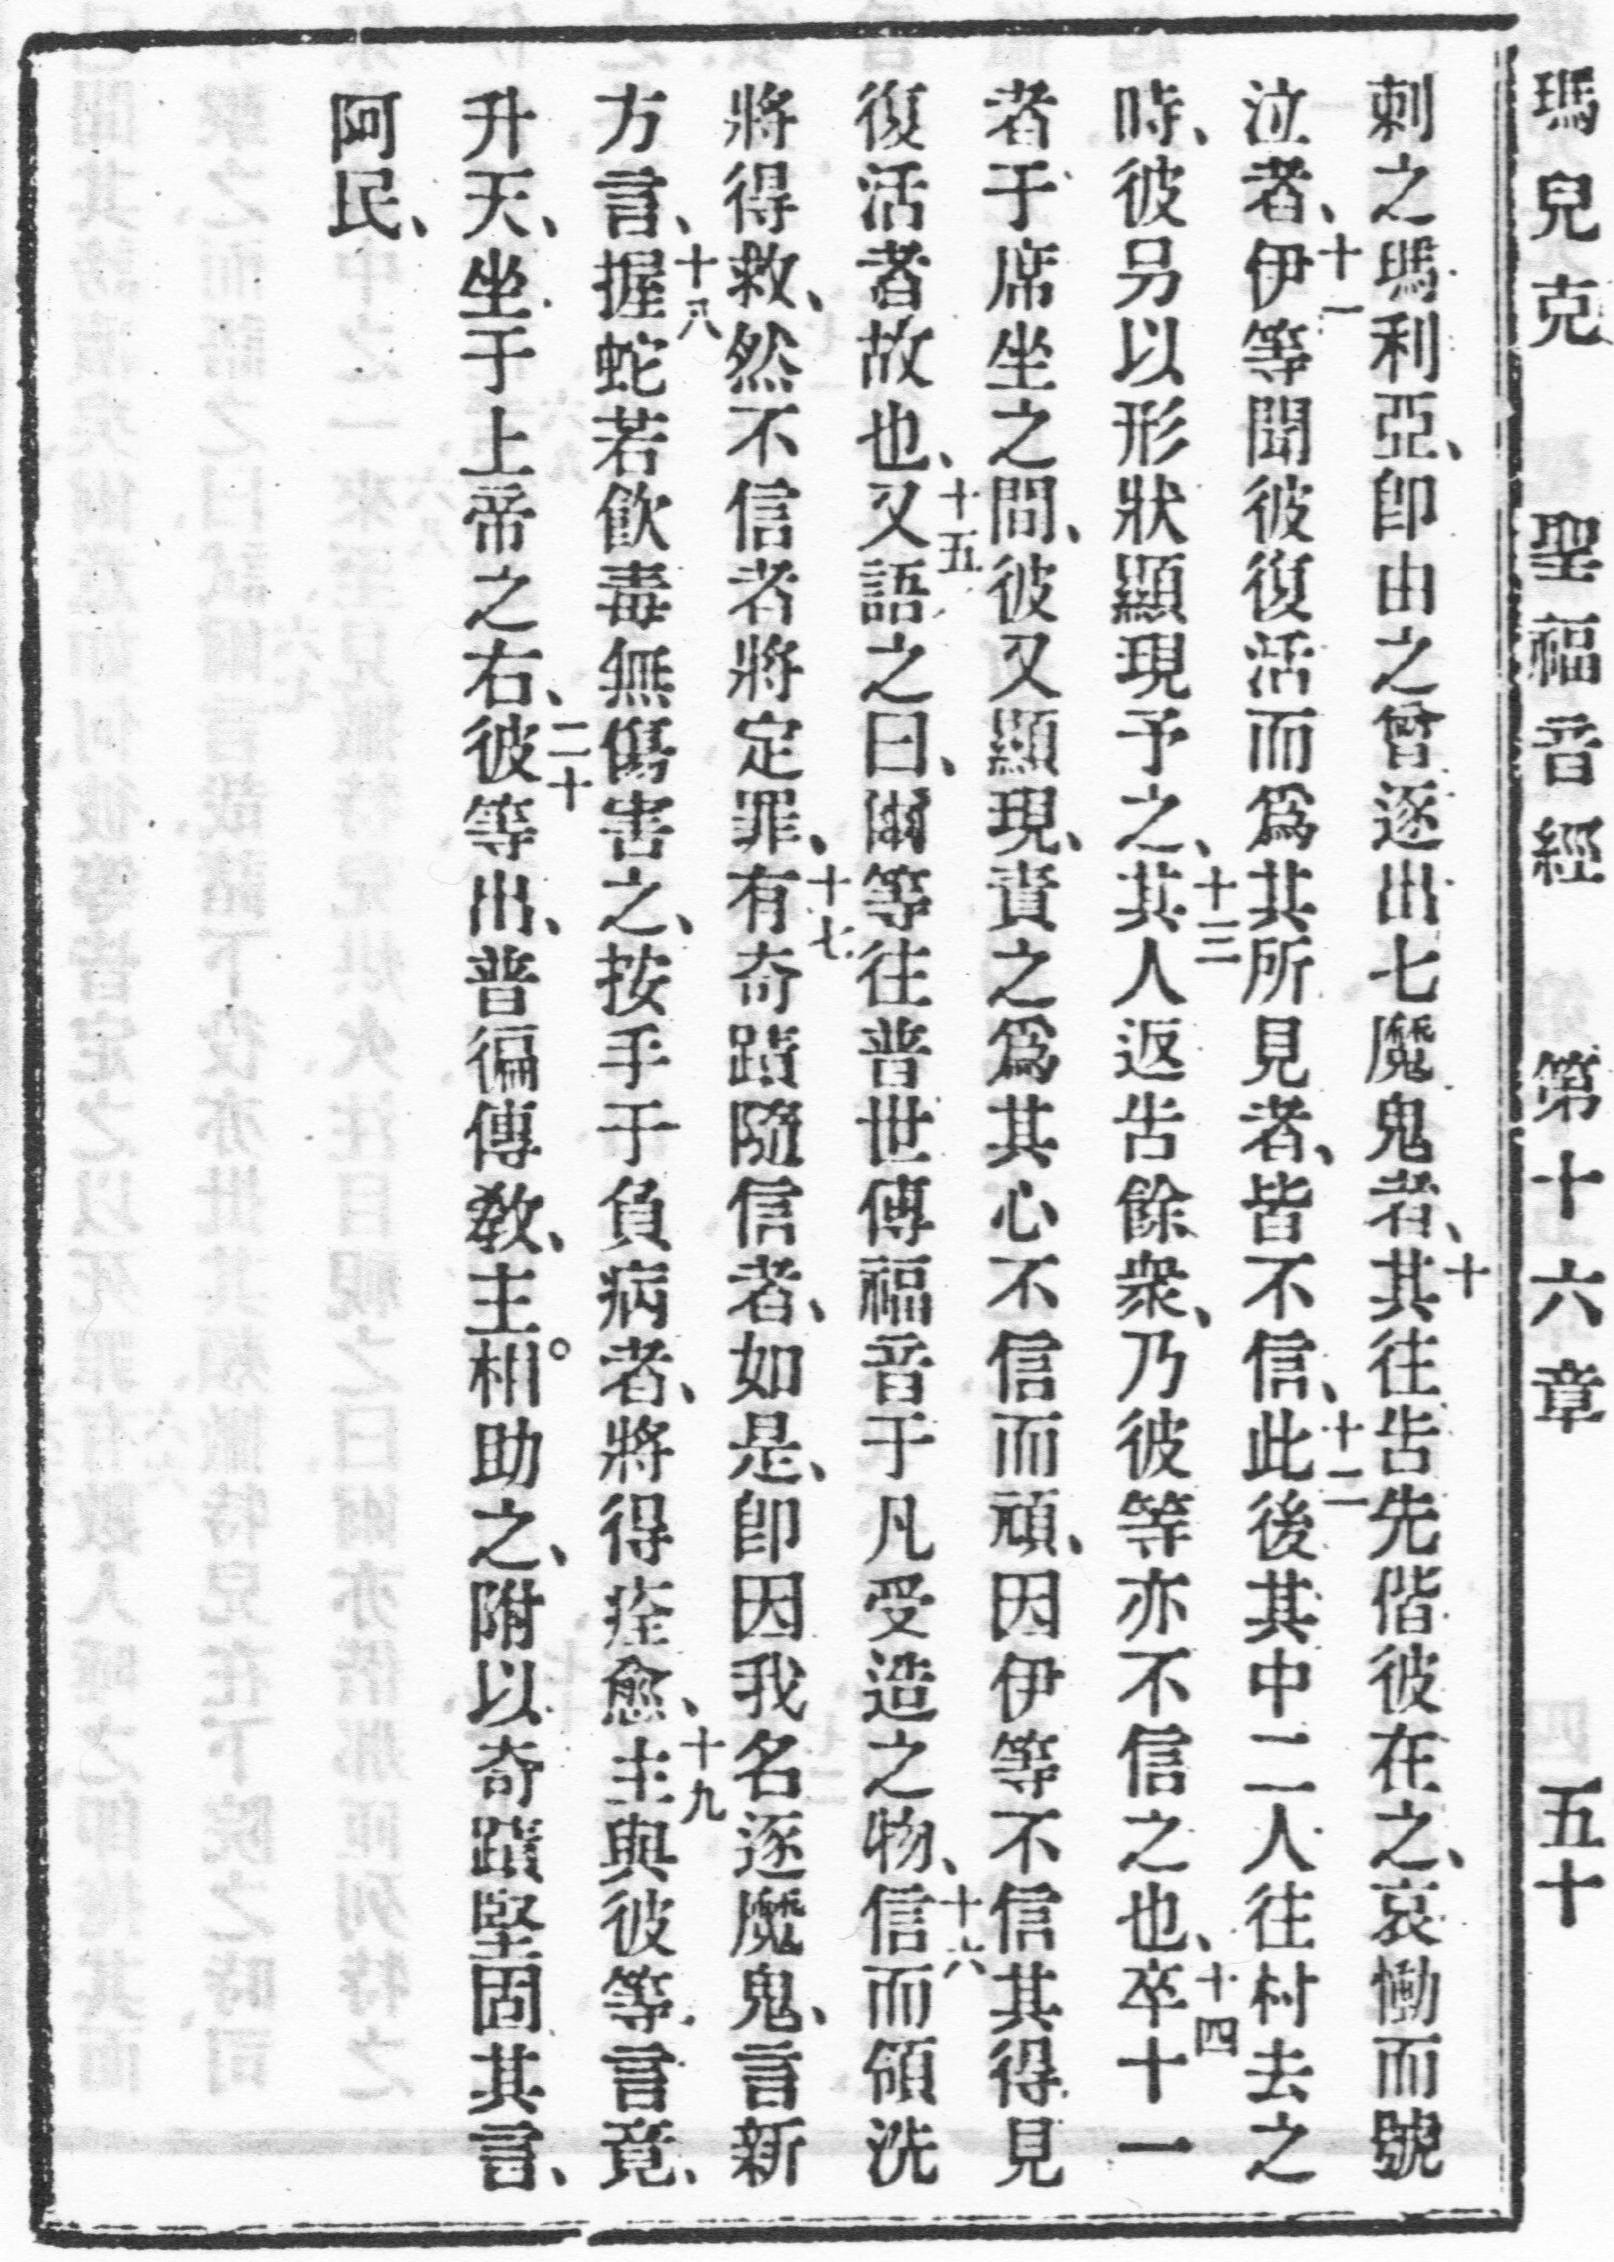 瑪兒克 聖福音經 第十六章 五十
刺之瑪利亞、卽由之曾逐出七魔鬼者、十其往告先偕彼在之、哀慟而號
泣者、十一伊等聞彼復活而爲其所見者、皆不信、十二此後其中二人往村去之
時、彼另以形狀顯現予之、十三其人返告餘衆、乃彼等亦不信之也、十四卒十一
者于席坐之間、彼又顯現、責之爲其心不信而頑、因伊等不信其得見
復活者故也、十五又語之曰、爾等往普世傳福音于凡受造之物、十六信而領洗
將得救、然不信者將定罪、十七有奇蹟隨信者、如是、卽因我名逐魔鬼、言新
方言、十八握蛇若飮毒無傷害之、按手于負病者、將得痊愈、十九主與彼等言竟、
升天、坐于上帝之右、二十彼等出、普徧傳敎、主相助之、附以奇蹟堅固其言、
阿民、